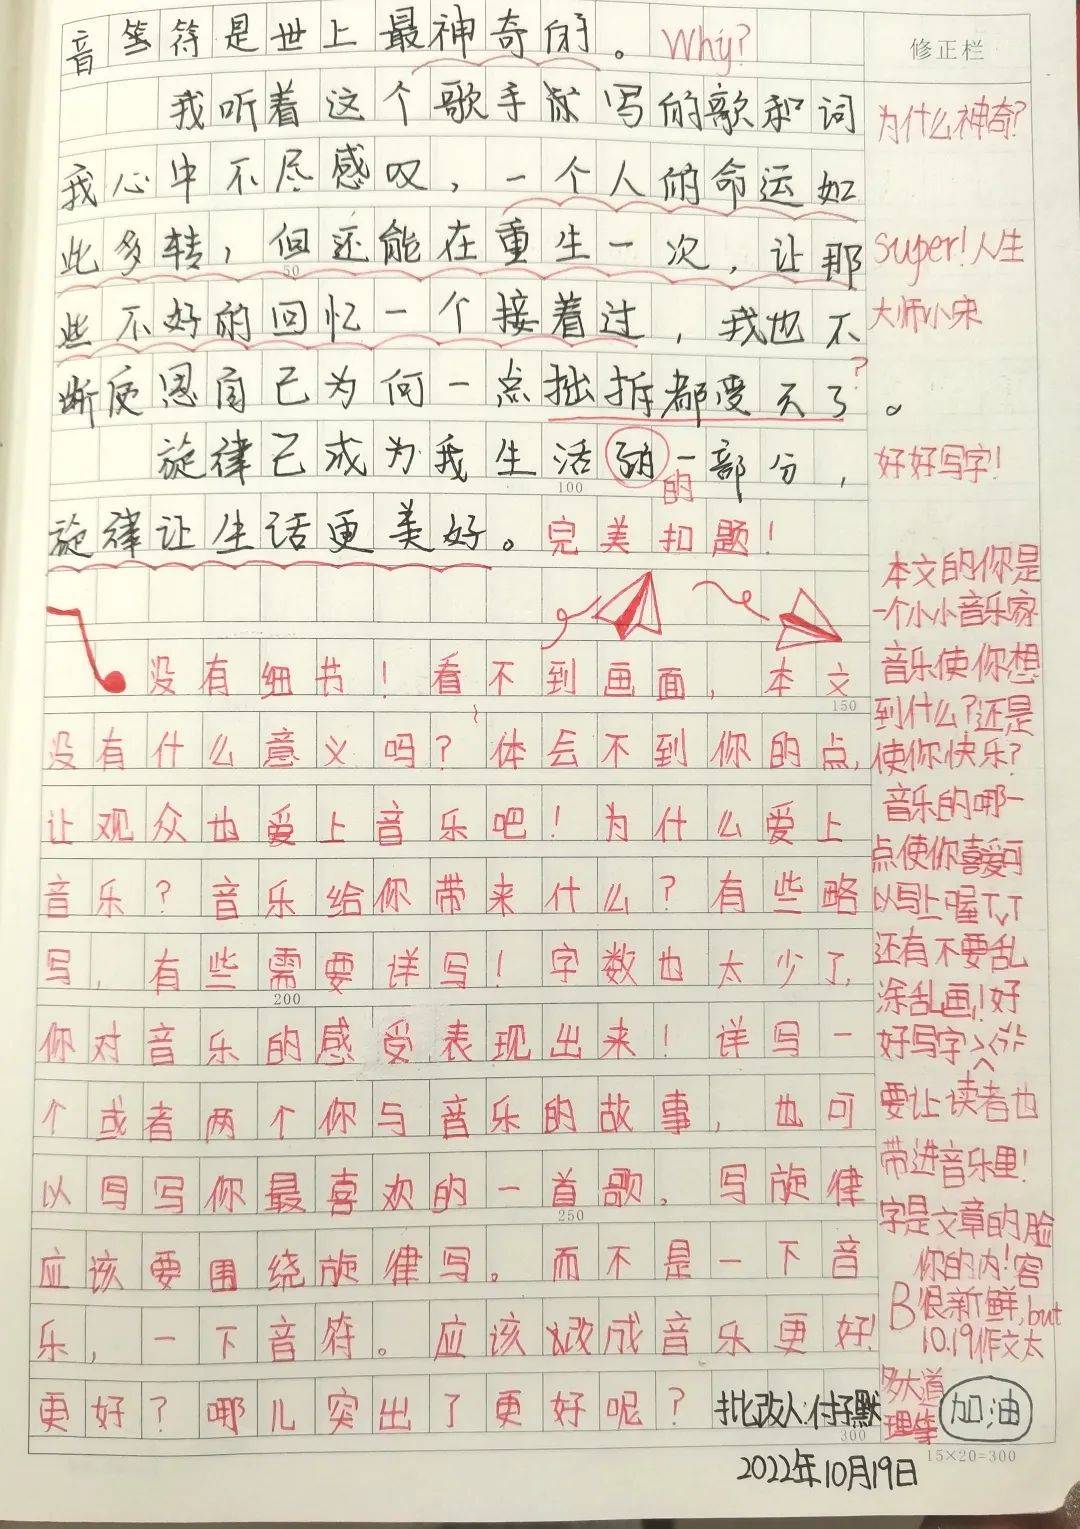 音符是世上最神奇的。 Why?
修正栏
我听着这个歌手你写的歌和词
为什么神奇?
我心中不尽感叹，一个人的命运如
此多转，但还能在重生一次，让那
super!人生
50
些不好的回忆一个接着过，我也不
大师小宋
断反思自己为何一点拙折都受不了。
?
旋律已成为我生活的一部分，
的
好好写字!
100
旋律让生活更美好。完美扣题!
本文的你是
一个小小音乐家
音乐使你想
到什么?还是
使你快乐?
音乐的哪一
点使你喜爱可
以写上喔TvT
还有不要乱
涂乱画!好
好写字
要让读者也
带进音乐里!
字是文章的脸
你的内!容
B很新鲜,but
10.19作文太
多大道
理等
加油
没有细节!看不到画面，本文
150
没有什么意义吗?体会不到你的点,
让观众也爱上音乐吧!为什么爱上
音乐?音乐给你带来什么?有些略
写，有些需要详写!字数也太少了,
200
你对音乐的感受表现出来!详写一
个或者两个你与音乐的故事，也可
以写写你最喜欢的一首歌，写旋律
250
应该要围绕旋律写。而不是一下音
乐，一下音符。应该改成音乐更好!
更好?哪儿突出了更好呢?
批改人:付子默
300
15×20=300
2022年10月19日